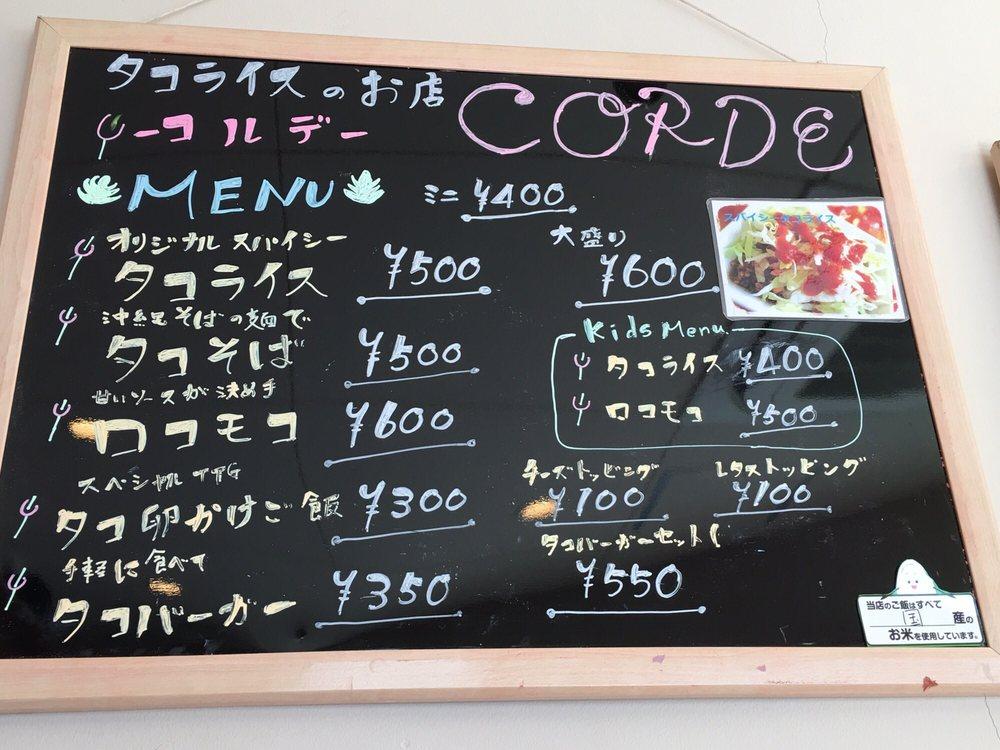 タコライスのお店
コルデー
CORDE
MENU
ミニ ¥400
オリジナルスパイシー
タコライス ¥500
大盛り
¥600
スパイシータコライス
沖縄そばの麺で
タコそば ¥500
甘いソースが決め手
ロコモコ ¥600
Kids Menu
タコライス ¥400
ロコモコ ¥500
スペシャル TTG
タコ卵かけご飯 ¥300
チーズトッピング
¥100
レタストッピング
¥100
手軽に食べて
タコバーガー ¥350
タコバーガーセット
¥550
当店のご飯はすべて
国産の
お米を使用しています。